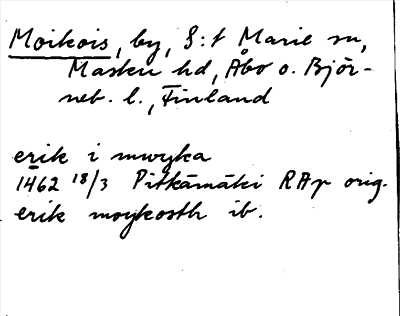 Moikois, by, S:t Marie sn,
Masku hd, Åbo o. Björ-
neb. l., Finland
erik i mwyka
1462 18/3 Pitkämäki RAp orig.
erik moykosth ib.